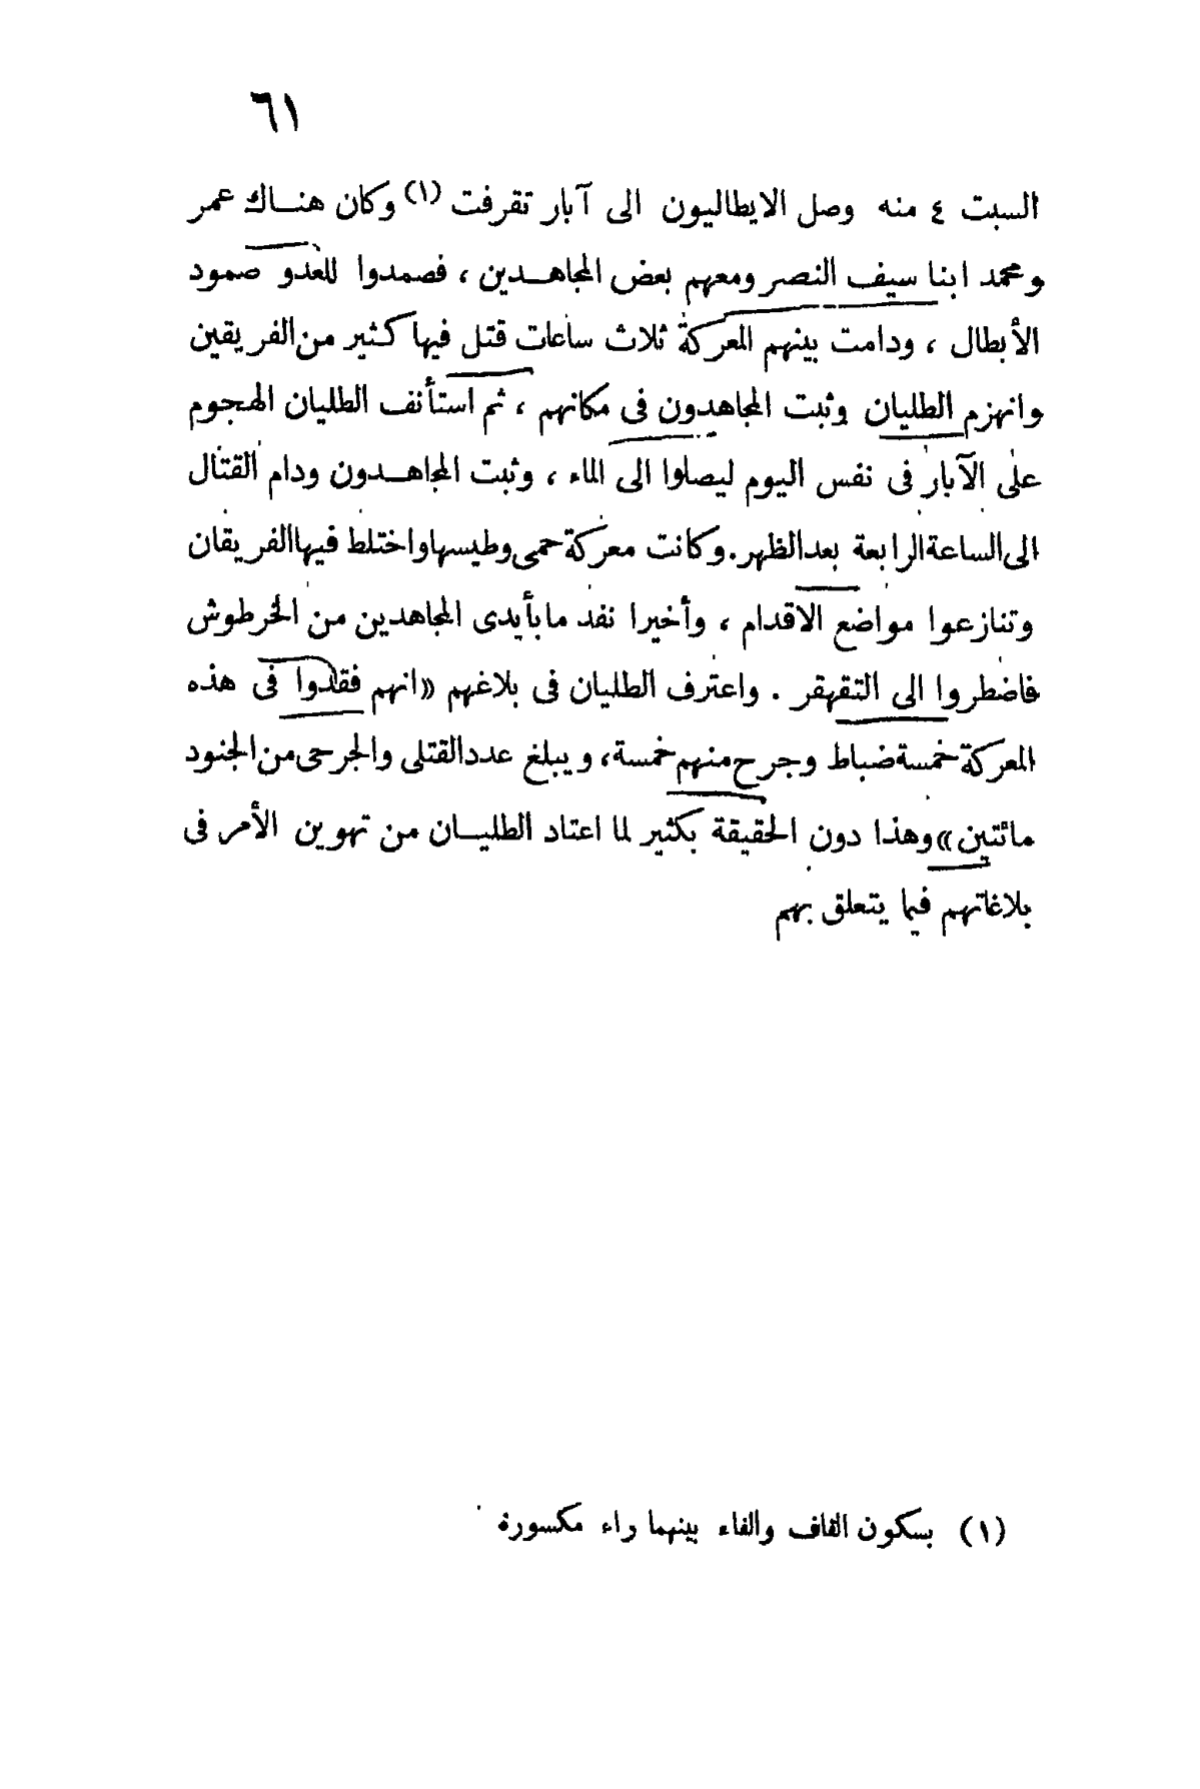 ٦١
السبت ٤ منه وصل الايطاليون الى آبار تقرفت (١) وكان هنـاك عمر
ومحمد ابنا سيف النصر ومعهم بعض المجاهـدين ، فصمدوا للعدو صمود
الأبطال ، ودامت بينهم المعركة ثلاث ساعات قتل فيها كثير من الفريقين
وانهزم الطليان وثبت المجاهدون فى مكانهم ، ثم استأنف الطليان الهجوم
على الآبار فى نفس اليوم ليصلوا الى الماء ، وثبت المجاهـدون ودام القتال
الى الساعة الرابعة بعد الظهر. وكانت معركة حمى وطيسها واختلط فيها الفريقان
وتنازعوا مواضع الاقدام ، وأخيرا نفد ما بأيدى المجاهدين من الخرطوش
فاضطروا الى التقهقر . واعترف الطليان فى بلاغهم «انهم فقدوا فى هذه
المعركة خمسة ضباط وجرح منهم خمسة، ويبلغ عدد القتلى والجرحى من الجنود
مائتين» وهذا دون الحقيقة بكثير لما اعتاد الطليـان من تهوين الأمر فى
بلاغاتهم فيما يتعلق بهم
(١) بسكون القاف والفاء بينهما راء مكسورة